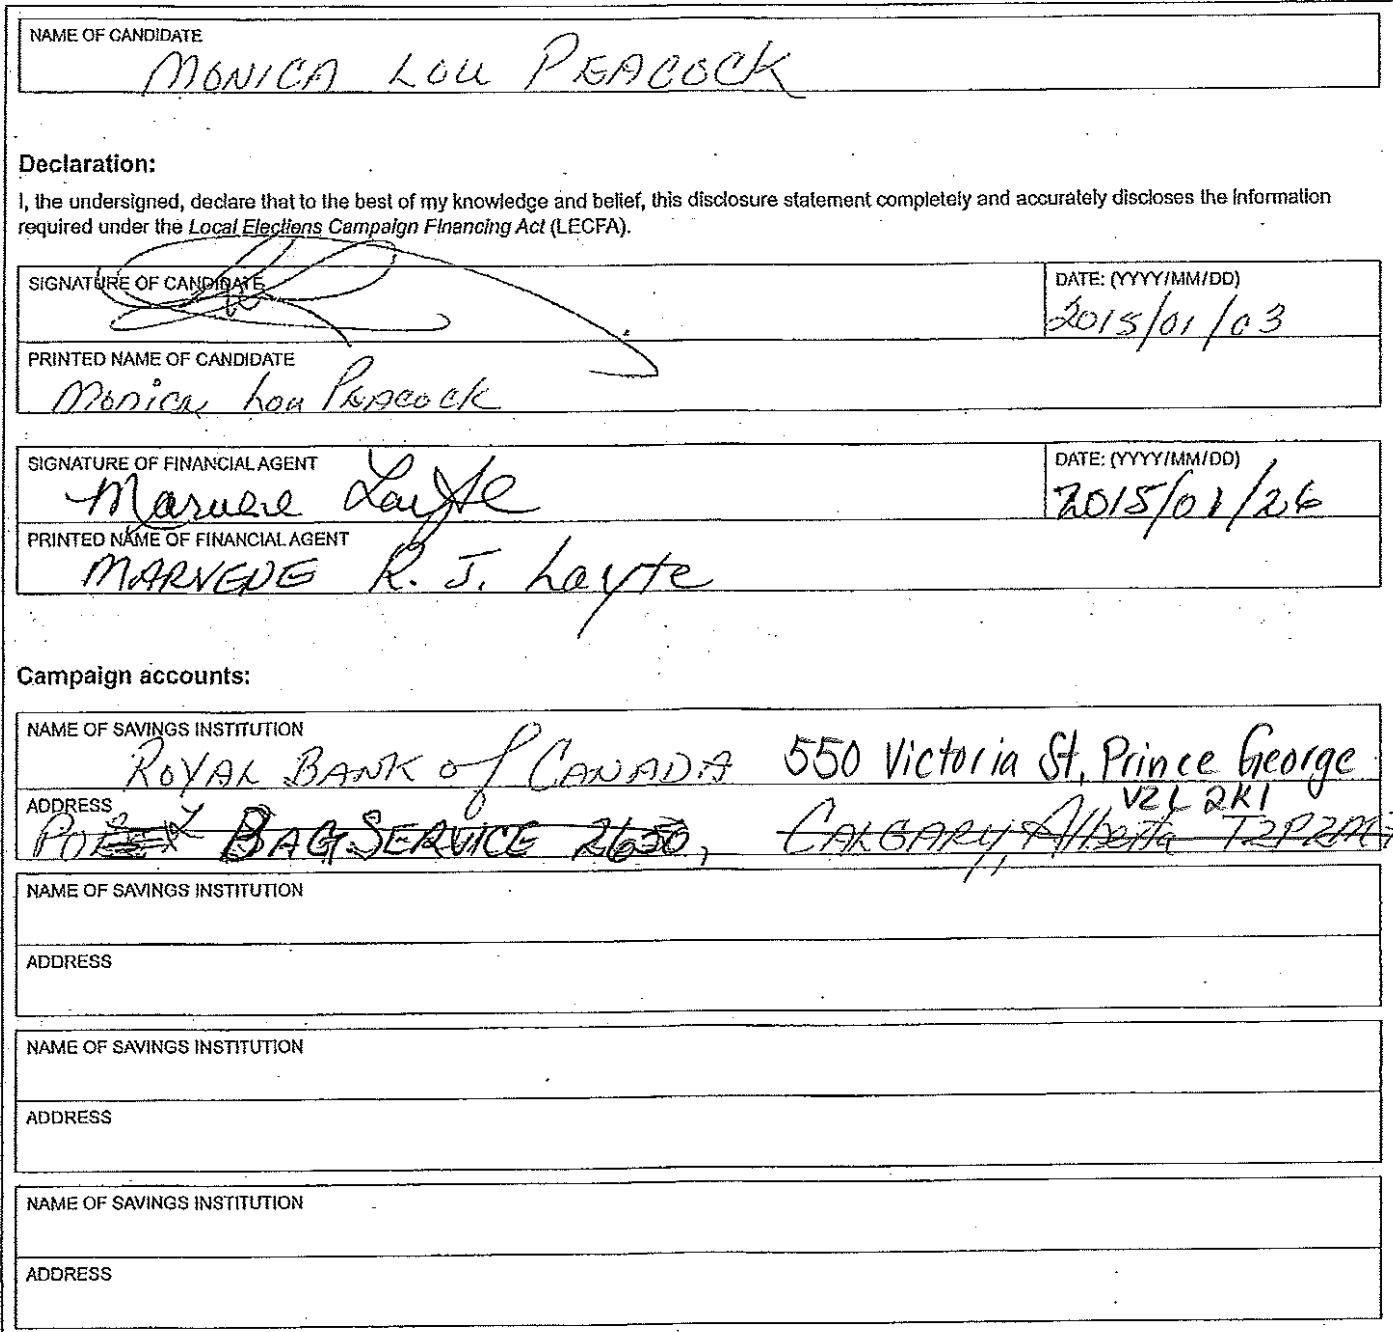 NAME OF CANDIDATE
MONICA LOU PEACOCK
Declaration:
I, the undersigned, declare that to the best of my knowledge and belief, this disclosure statement completely and accurately discloses the information
required under the Local Elections Campaign Financing Act (LECFA).
SIGNATURE OF CANDIDATE
DATE: (YYYY/MM/DD)
2015/01/03
PRINTED NAME OF CANDIDATE
Monica Lou Peacock
SIGNATURE OF FINANCIAL AGENT
Marvene Layte
DATE: (YYYY/MM/DD)
2015/01/26
PRINTED NAME OF FINANCIAL AGENT
MARVENE R. J. Layte
Campaign accounts:
NAME OF SAVINGS INSTITUTION
ROYAL BANK of CANADA 550 Victoria St, Prince George
V2L 2K1
ADDRESS
BAG SERVICE 2650, CALGARY, Alberta T2P2M7
NAME OF SAVINGS INSTITUTION
ADDRESS
NAME OF SAVINGS INSTITUTION
ADDRESS
NAME OF SAVINGS INSTITUTION
ADDRESS